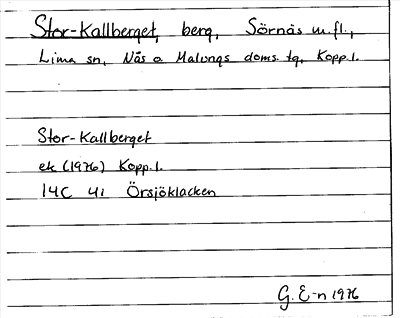 Stor-Kallberget, berg, Sörnäs m.fl.,
Lima sn, Nås o Malungs doms. tg, Kopp.l.
Stor-Kallberget
ek (1976) Kopp.l.
14C 4i Örsjöklacken
G. E-n 1976